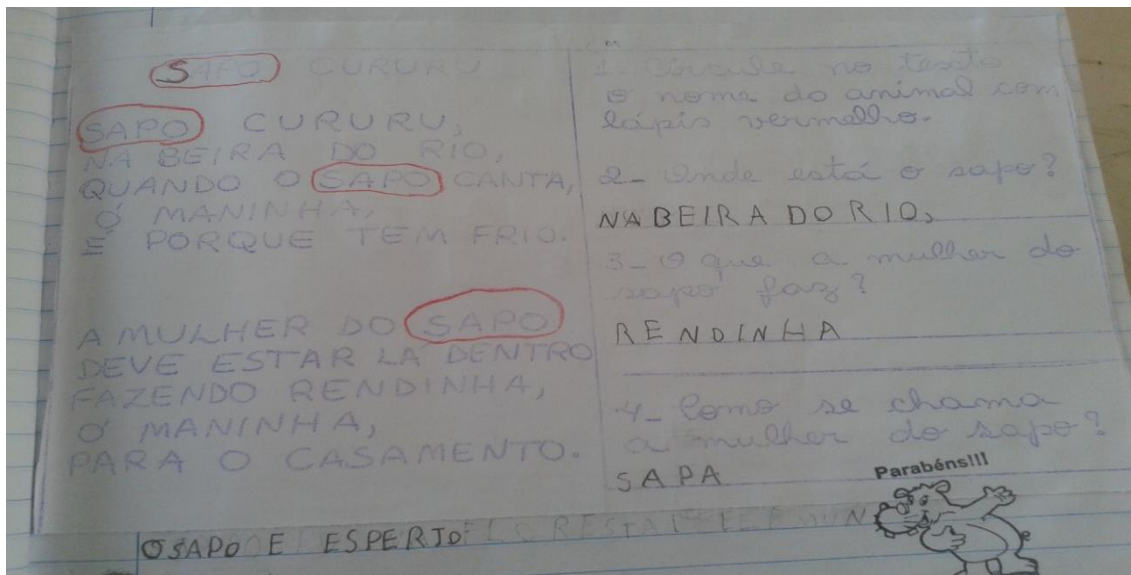 SAPO CURURU
SAPO CURURU,
NA BEIRA DO RIO,
QUANDO O SAPO CANTA,
Ó MANINHA,
É PORQUE TEM FRIO.
A MULHER DO SAPO
DEVE ESTAR LÁ DENTRO
FAZENDO RENDINHA,
Ó MANINHA,
PARA O CASAMENTO.
1- Circule no texto
o nome do animal com
lápis vermelho.
2- Onde está o sapo?
NA BEIRA DO RIO,
3- O que a mulher do
sapo faz?
RENDINHA
4- Como se chama
a mulher do sapo?
SAPA
Parabéns!!!
O SAPO E ESPERTO